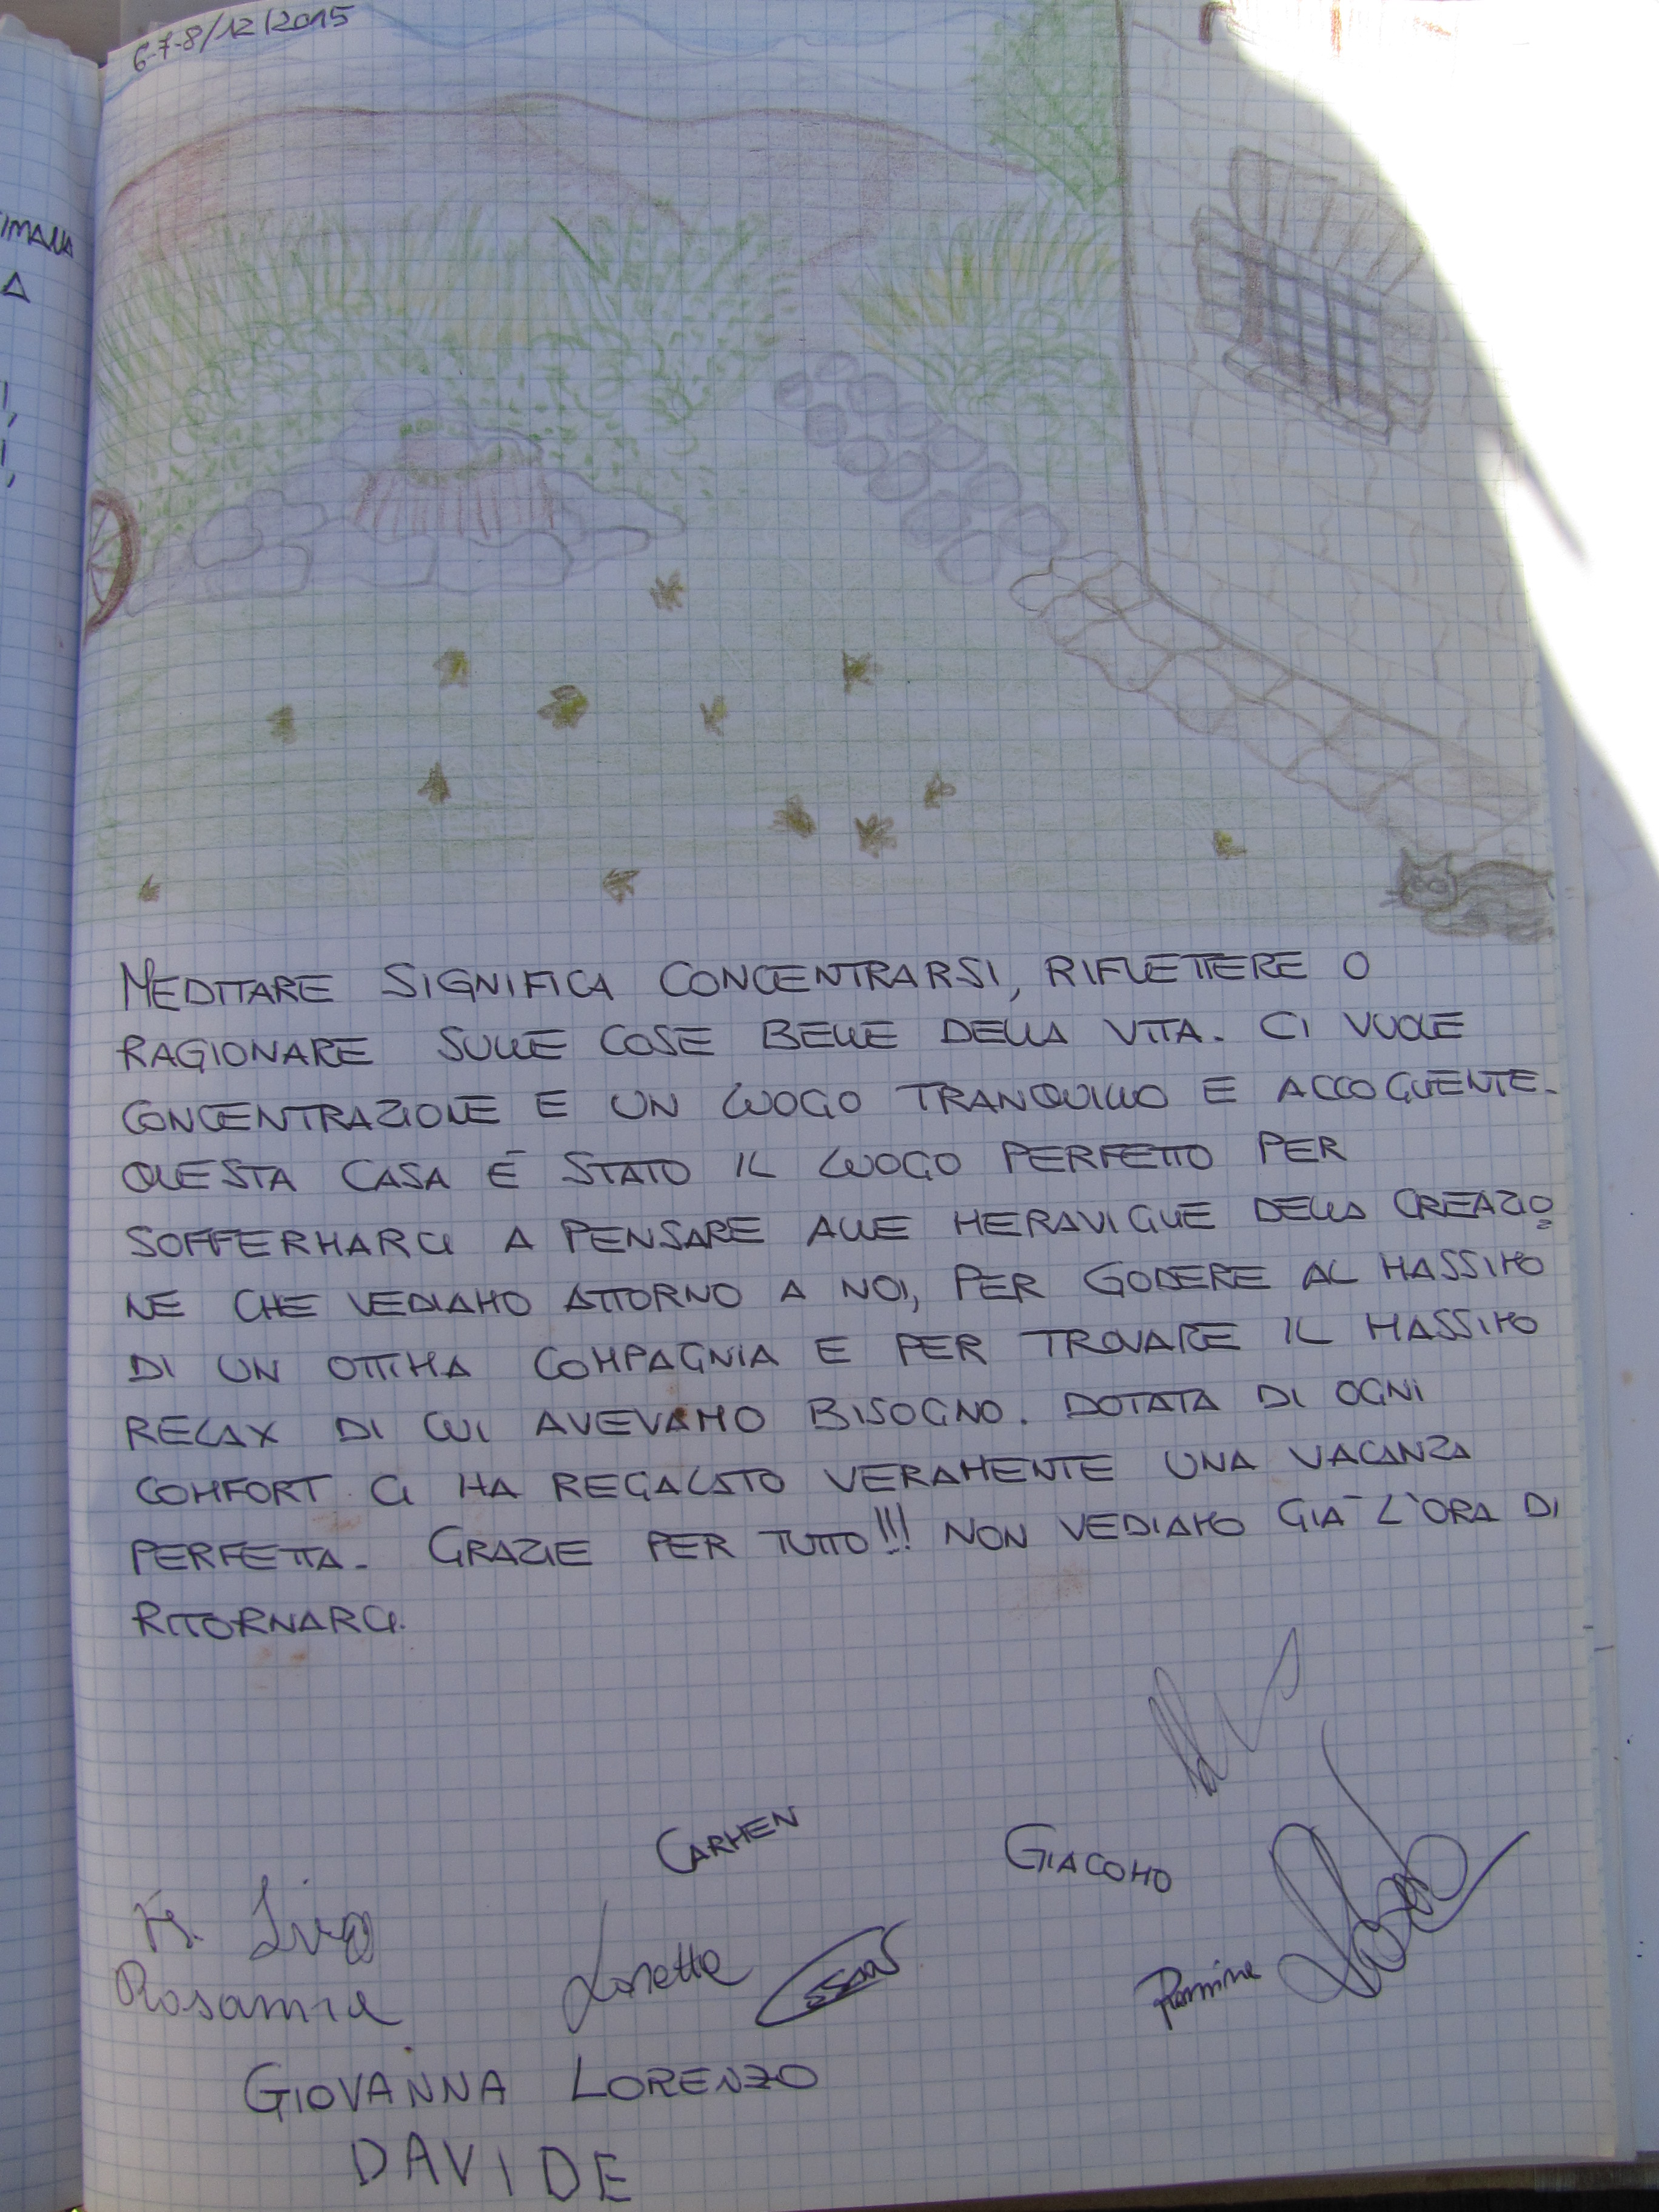 6-7-8/12/2015
IMANA
A
MEDITARE SIGNIFICA CONCENTRARSI, RIFLETTERE O
RAGIONARE SULLE COSE BELLE DELLA VITA. CI VUOLE
CONCENTRAZIONE E UN LUOGO TRANQUILLO E ACCOGLIENTE.
QUESTA CASA È STATO IL LUOGO PERFETTO PER
SOFFERMARCI A PENSARE ALLE MERAVIGLIE DELLA CREAZIO
NE CHE VEDIAMO ATTORNO A NOI, PER GODERE AL MASSIMO
DI UN OTTIMA COMPAGNIA E PER TROVARE IL MASSIMO
RELAX DI CUI AVEVAMO BISOGNO. DOTATA DI OGNI
COMFORT CI HA REGALATO VERAMENTE UNA VACANZA
PERFETTA. GRAZIE PER TUTTO!!! NON VEDIAMO GIÀ L'ORA DI
RITORNARCI.
CARMEN
GIACOMO
Rosanna
Loretta
GIOVANNA LORENZO
DAVIDE